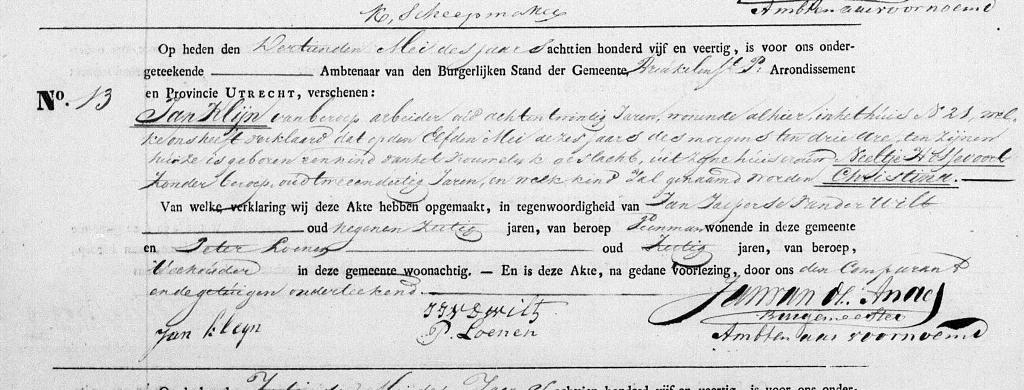 K, Scheepmaker
Ambtenaar voornoemd
Op heden den Dertienden Mei des jaars achttien honderd vijf en veertig, is voor ons onder-
geteekende Ambtenaar van den Burgerlijken Stand der Gemeente Breukelen St. P. Arrondissement
No. 13 en Provincie UTRECHT, verschenen:
Jan Klijn van beroep arbeider oud achtentwintig Jaren, wonende alhier in het huis N 21, wel-
ke ons heeft verklaard dat op den Elfden Mei dezes jaars des morgens ten drie ure, ten zijnen
huize is geboren een kind van het vrouwelijk geslacht, uit zijne huisvrouw Neeltje
zonder beroep, oud twee en dertig Jaren, en welk kind zal genaamd worden Christina.
Van welke verklaring wij deze Akte hebben opgemaakt, in tegenwoordigheid van Jan van der Wilt
oud negenen jaren, van beroep wonende in deze gemeente
en Peter Loenen oud jaren, van beroep,
Veehouder in deze gemeente woonachtig. — En is deze Akte, na gedane voorlezing, door ons den Comparant
en de getuigen onderteekend.
Jan van de
Burgemeester
Jan kleyn
P. Loenen
Ambtenaar voornoemd
Mei des Jaars achttien honderd vijf en veertig, is voor ons onder-